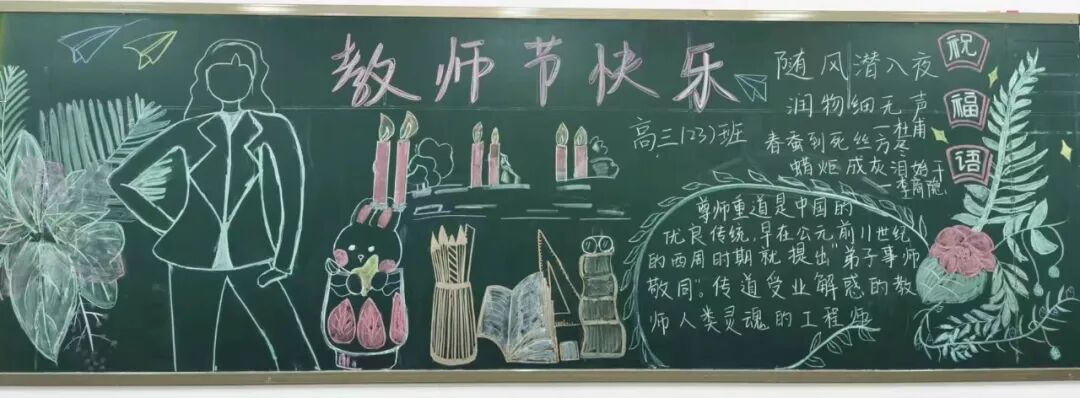 教师节快乐
高三(23)班
随风潜入夜
润物细无声
—杜甫
春蚕到死丝方尽
蜡炬成灰泪始干
—李商隐
祝福语
尊师重道是中国的
优良传统,早在公元前11世纪
的西周时期就提出"弟子事师
敬同"。传道受业解惑的教
师人类灵魂的工程师